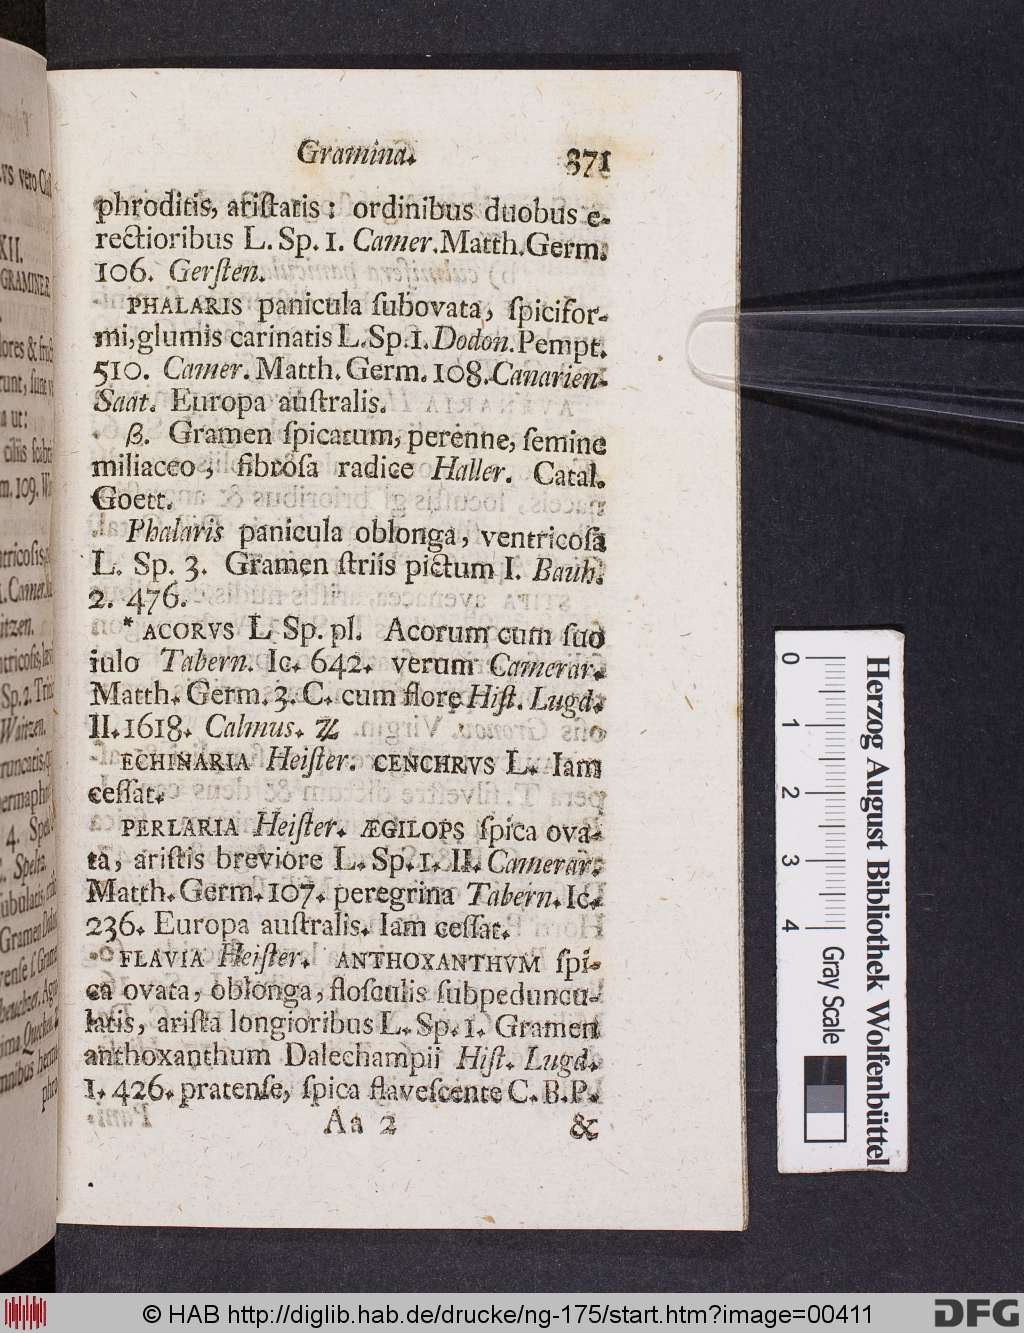 Gramina. 371
phroditis, ariſtatis: ordinibus duobus e-
rectioribus L. Sp. 1. Camer. Matth. Germ.
106. Gerſten.
PHALARIS panicula ſubovata, ſpicifor-
mi, glumis carinatis L. Sp. 1. Dodon. Pempt.
510. Camer. Matth. Germ. 108. Canarien-
Saat. Europa auſtralis.
β. Gramen ſpicatum, perenne, ſemine
miliaceo, fibroſa radice Haller. Catal.
Goett.
Phalaris panicula oblonga, ventricoſa
L. Sp. 3. Gramen ſtriis pictum I. Bauh.
2. 476.
* ACORVS L Sp. pl. Acorum cum ſuo
iulo Tabern. Ic. 642. verum Camerar.
Matth. Germ. 3. C. cum flore Hiſt. Lugd.
II. 1618. Calmus. ♃
ECHINARIA Heiſter. CENCHRVS L. Iam
ceſſat.
PERLARIA Heiſter. ÆGILOPS ſpica ova-
ta, ariſtis breviore L. Sp. 1. II. Camerar.
Matth. Germ. 107. peregrina Tabern. Ic.
236. Europa auſtralis. Iam ceſſat.
FLAVIA Heiſter. ANTHOXANTHVM ſpi-
ca ovata, oblonga, floſculis ſubpeduncu-
latis, ariſta longioribus L. Sp. 1. Gramen
anthoxanthum Dalechampii Hiſt. Lugd.
I. 426. pratenſe, ſpica flaveſcente C. B. P.
Aa 2 &
0 1 2 3 4
Herzog August Bibliothek Wolfenbüttel
Gray Scale
© HAB http://diglib.hab.de/drucke/ng-175/start.htm?image=00411
DFG